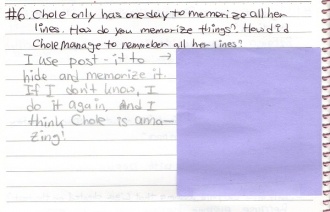 #6. Chole only has one day to memorize all her
lines. How do you memorize things? How did
Chole manage to remember all her lines?
I use post-it to →
hide and memorize it.
If I don't know, I
do it again. And I
think Chole is ama-
zing!